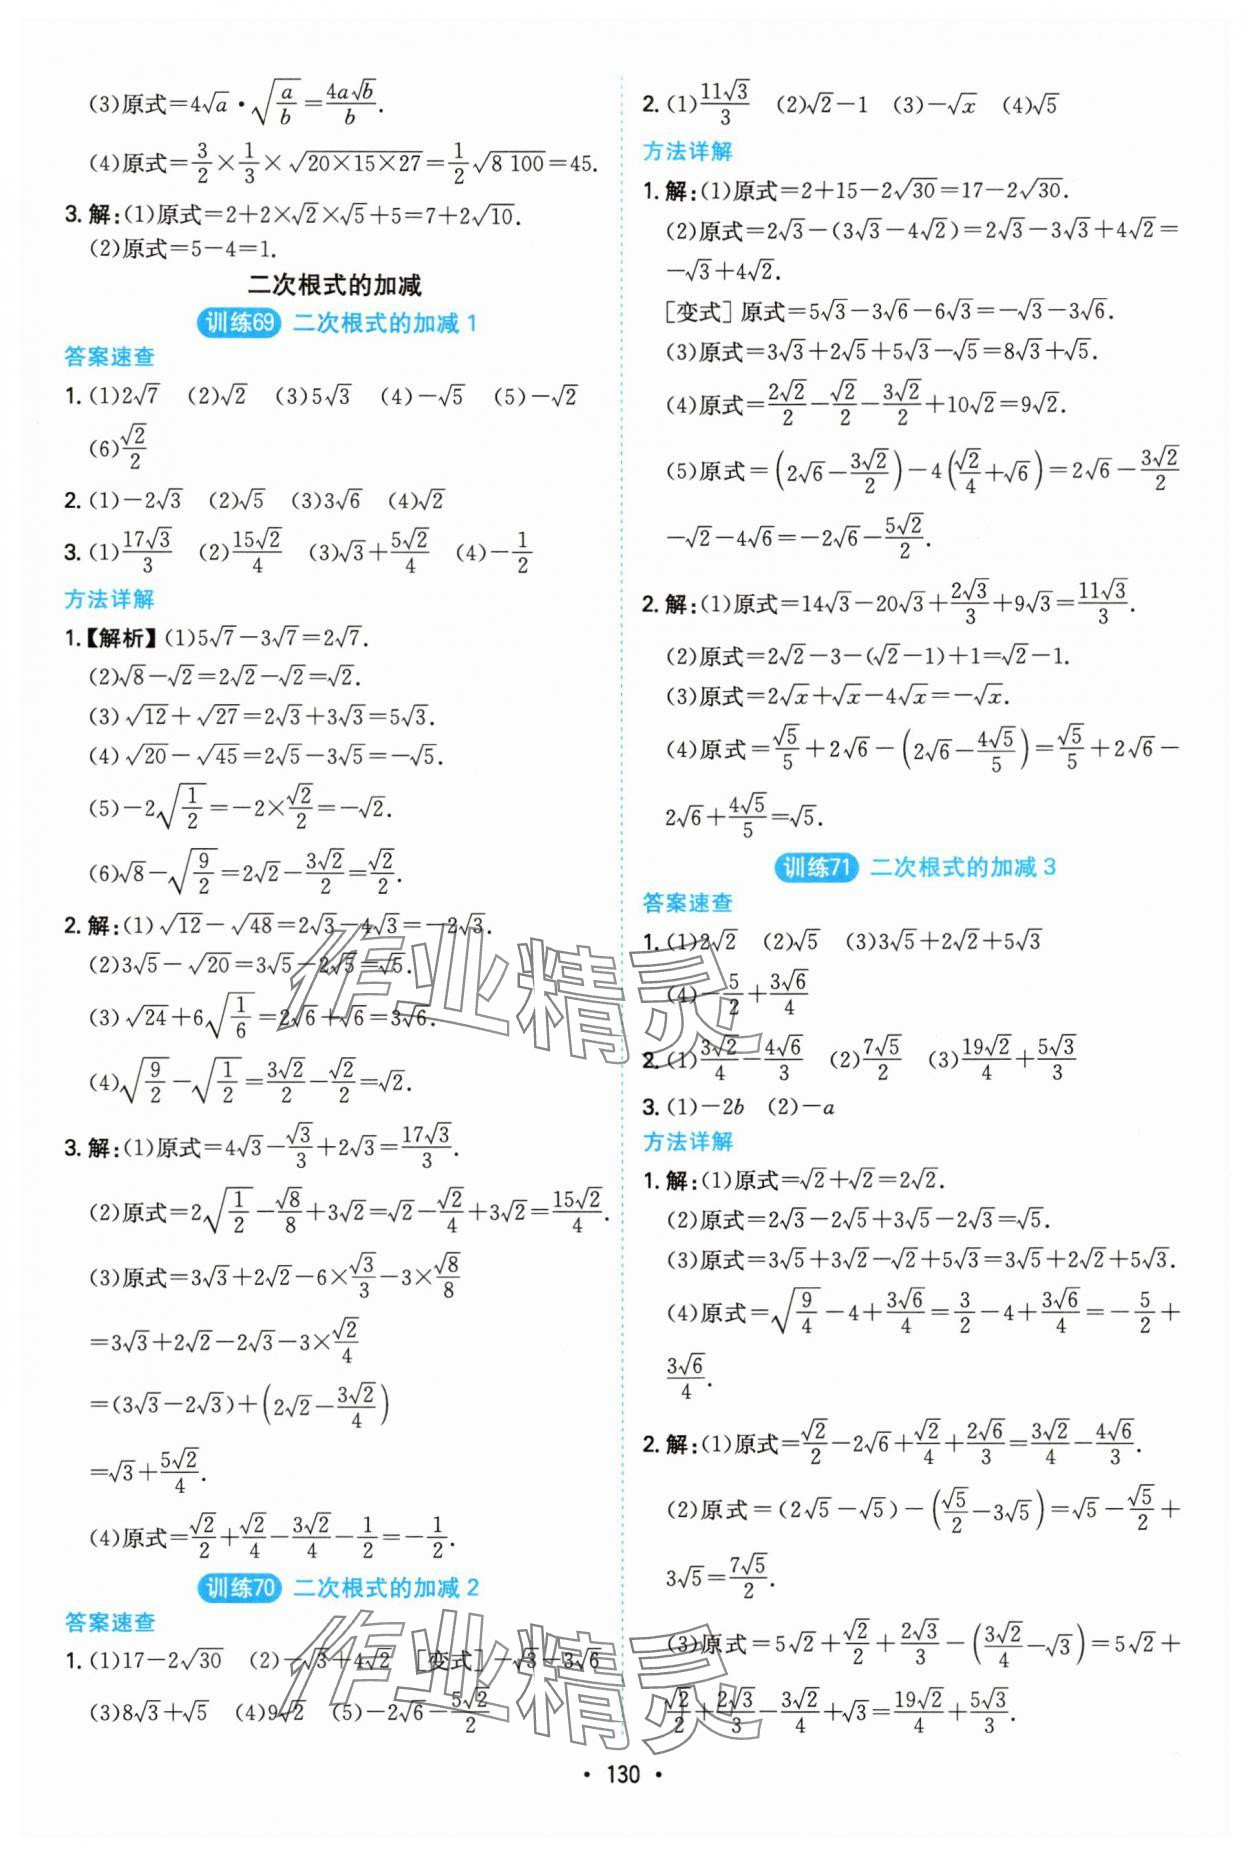 (3)原式=4√a·√(a/b)=4a√b/b.
(4)原式=3/2×1/3×√(20×15×27)=1/2√(8 100)=45.
3.解:(1)原式=2+2×√2×√5+5=7+2√10.
(2)原式=5-4=1.
二次根式的加减
训练69 二次根式的加减1
答案速查
1.(1)2√7 (2)√2 (3)5√3 (4)-√5 (5)-√2
(6)√2/2
2.(1)-2√3 (2)√5 (3)3√6 (4)√2
3.(1)17√3/3 (2)15√2/4 (3)√3+5√2/4 (4)-1/2
方法详解
1.【解析】(1)5√7-3√7=2√7.
(2)√8-√2=2√2-√2=√2.
(3)√12+√27=2√3+3√3=5√3.
(4)√20-√45=2√5-3√5=-√5.
(5)-2√(1/2)=-2×√2/2=-√2.
(6)√8-√(9/2)=2√2-3√2/2=√2/2.
2.解:(1)√12-√48=2√3-4√3=-2√3.
(2)3√5-√20=3√5-2√5=√5.
(3)√24+6√(1/6)=2√6+√6=3√6.
(4)√(9/2)-√(1/2)=3√2/2-√2/2=√2.
3.解:(1)原式=4√3-√3/3+2√3=17√3/3.
(2)原式=2√(1/2)-√8/8+3√2=√2-√2/4+3√2=15√2/4.
(3)原式=3√3+2√2-6×√3/3-3×√8/8
=3√3+2√2-2√3-3×√2/4
=(3√3-2√3)+(2√2-3√2/4)
=√3+5√2/4.
(4)原式=√2/2+√2/4-3√2/4-1/2=-1/2.
训练70 二次根式的加减2
答案速查
1.(1)17-2√30 (2)-√3+4√2 [变式]-√3-3√6
(3)8√3+√5 (4)9√2 (5)-2√6-5√2/2
2.(1)11√3/3 (2)√2-1 (3)-√x (4)√5
方法详解
1.解:(1)原式=2+15-2√30=17-2√30.
(2)原式=2√3-(3√3-4√2)=2√3-3√3+4√2=
-√3+4√2.
[变式]原式=5√3-3√6-6√3=-√3-3√6.
(3)原式=3√3+2√5+5√3-√5=8√3+√5.
(4)原式=2√2/2-√2/2-3√2/2+10√2=9√2.
(5)原式=(2√6-3√2/2)-4(√2/4+√6)=2√6-3√2/2
-√2-4√6=-2√6-5√2/2.
2.解:(1)原式=14√3-20√3+2√3/3+9√3=11√3/3.
(2)原式=2√2-3-(√2-1)+1=√2-1.
(3)原式=2√x+√x-4√x=-√x.
(4)原式=√5/5+2√6-(2√6-4√5/5)=√5/5+2√6-
2√6+4√5/5=√5.
训练71 二次根式的加减3
答案速查
1.(1)2√2 (2)√5 (3)3√5+2√2+5√3
(4)-5/2+3√6/4
2.(1)3√2/4-4√6/3 (2)7√5/2 (3)19√2/4+5√3/3
3.(1)-2b (2)-a
方法详解
1.解:(1)原式=√2+√2=2√2.
(2)原式=2√3-2√5+3√5-2√3=√5.
(3)原式=3√5+3√2-√2+5√3=3√5+2√2+5√3.
(4)原式=√(9/4)-4+3√6/4=3/2-4+3√6/4=-5/2+
3√6/4.
2.解:(1)原式=√2/2-2√6+√2/4+2√6/3=3√2/4-4√6/3.
(2)原式=(2√5-√5)-(√5/2-3√5)=√5-√5/2+
3√5=7√5/2.
(3)原式=5√2+√2/2+2√3/3-(3√2/4-√3)=5√2+
√2/2+2√3/3-3√2/4+√3=19√2/4+5√3/3.
作业精灵
作业精灵
• 130 •